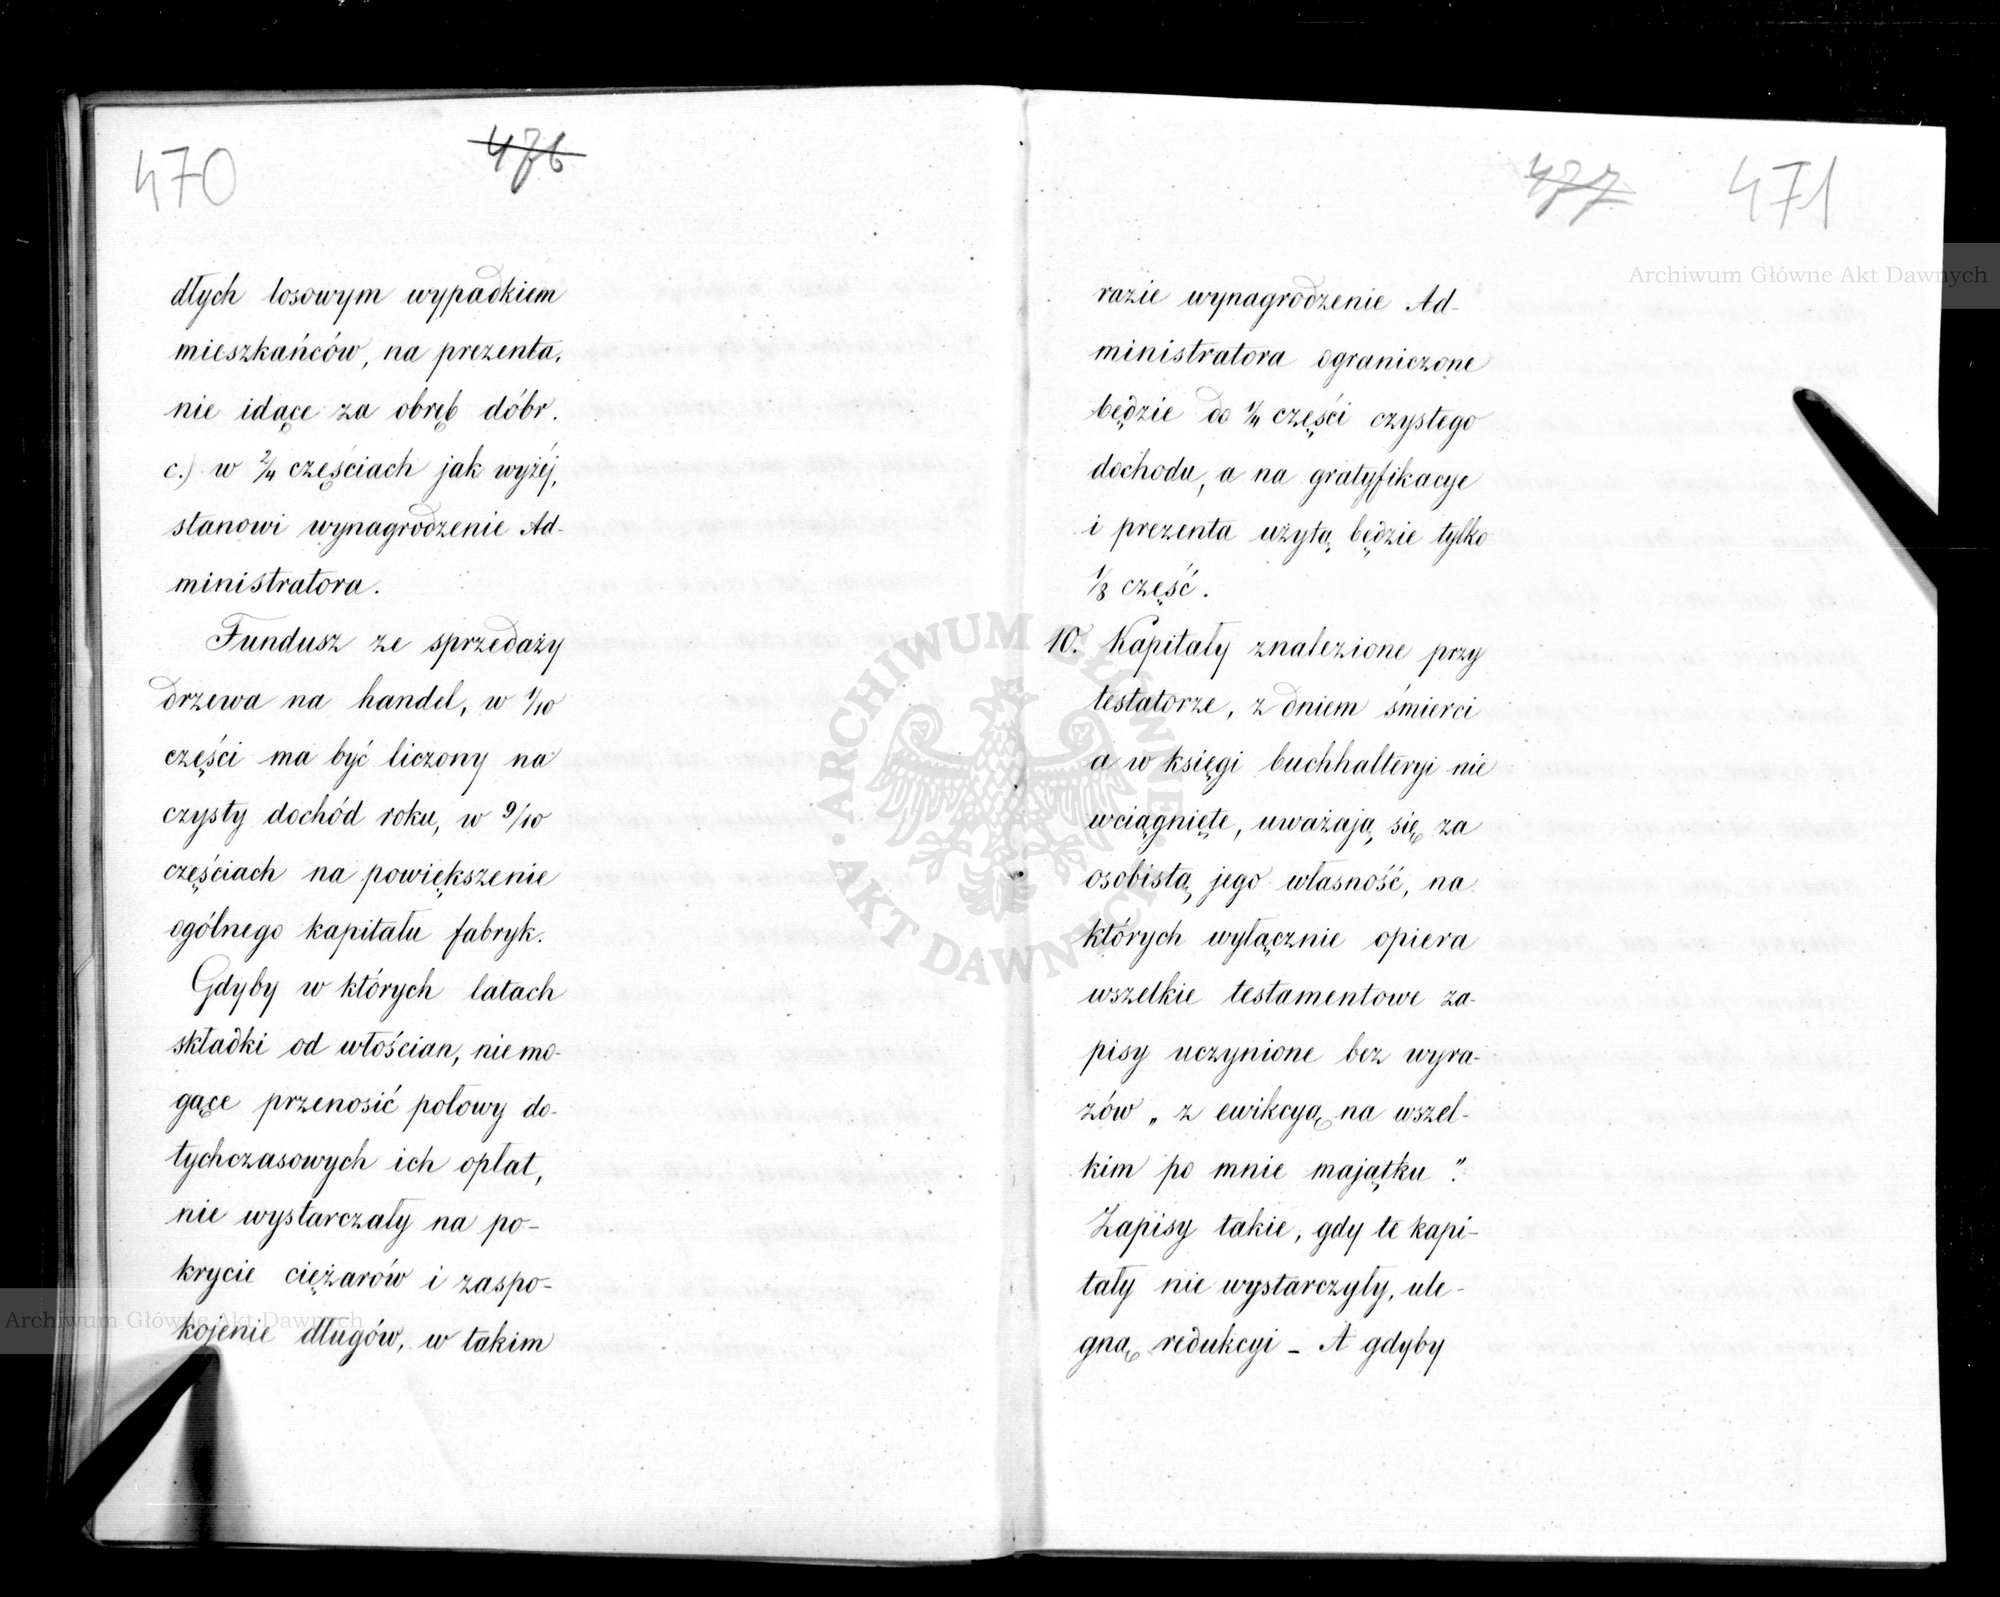 470
476
dłych losowym wypadkiem
mieszkańców, na prezenta,
nie idące za obręb dóbr.
c.) w 2/4 częściach jak wyżéj,
stanowi wynagrodzenie Ad-
ministratora.
Fundusz ze sprzedaży
drzewa na handel, w 1/10
części ma być liczony na
czysty dochód roku, w 9/10
częściach na powiększenie
ogólnego kapitału fabryk.
Gdyby w których latach
składki od włościan, nie mo-
gące przenosić połowy do-
tychczasowych ich opłat,
nie wystarczały na po-
krycie ciężarów i zaspo-
kojenie długów, w takim
477
471
razie wynagrodzenie Ad-
ministratora ograniczone
będzie do 1/4 części czystego
dochodu, a na gratyfikacye
i prezenta użytą będzie tylko
1/8 część.
10. Kapitały znalezione przy
testatorze, z dniem śmierci
a w księgi buchhalteryi nie
wciągnięte, uważają się za
osobistą jego własność, na
których wyłącznie opiera
wszelkie testamentowe za-
pisy uczynione bez wyra-
zów „z ewikcyą na wszel-
kim po mnie majątku".
Zapisy takie, gdy te kapi-
tały nie wystarczyły, ule-
gną redukcyi - A gdyby
Archiwum Główne Akt Dawnych
Archiwum Główne Akt Dawnych
ARCHIWUM GŁÓWNE AKT DAWNYCH